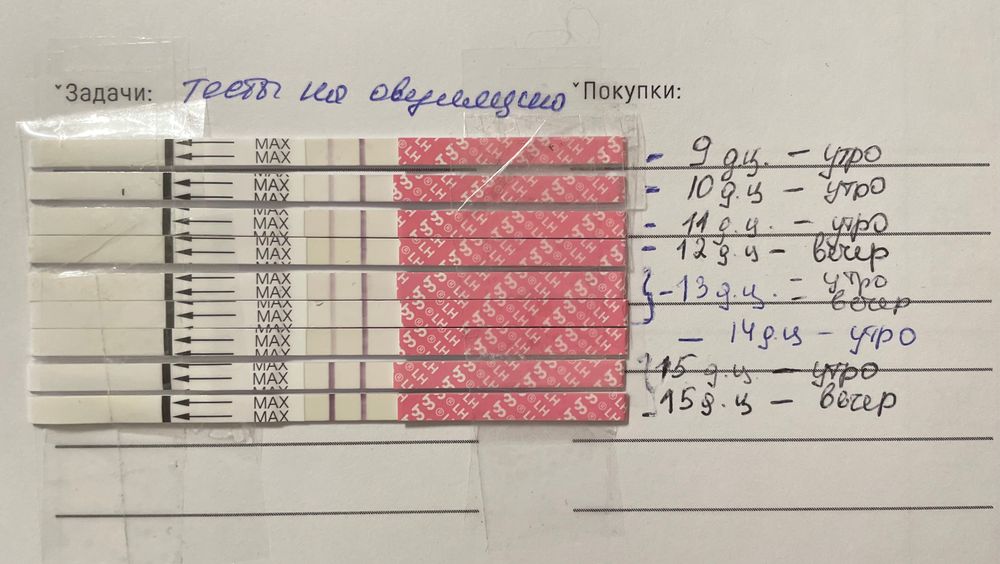 Задачи: тесты на овуляцию Покупки:
MAX
MAX - 9 д.ц. - утро
MAX
MAX - 10 д.ц - утро
MAX
MAX - 11 д.ц. - утро
MAX
MAX - 12 д.ц - вечер
MAX
MAX - 13 д.ц. - утро
MAX
MAX - вечер
MAX
MAX - 14 д.ц - утро
MAX
MAX 15 д.ц - утро
MAX
MAX - 15 д.ц - вечер
LH